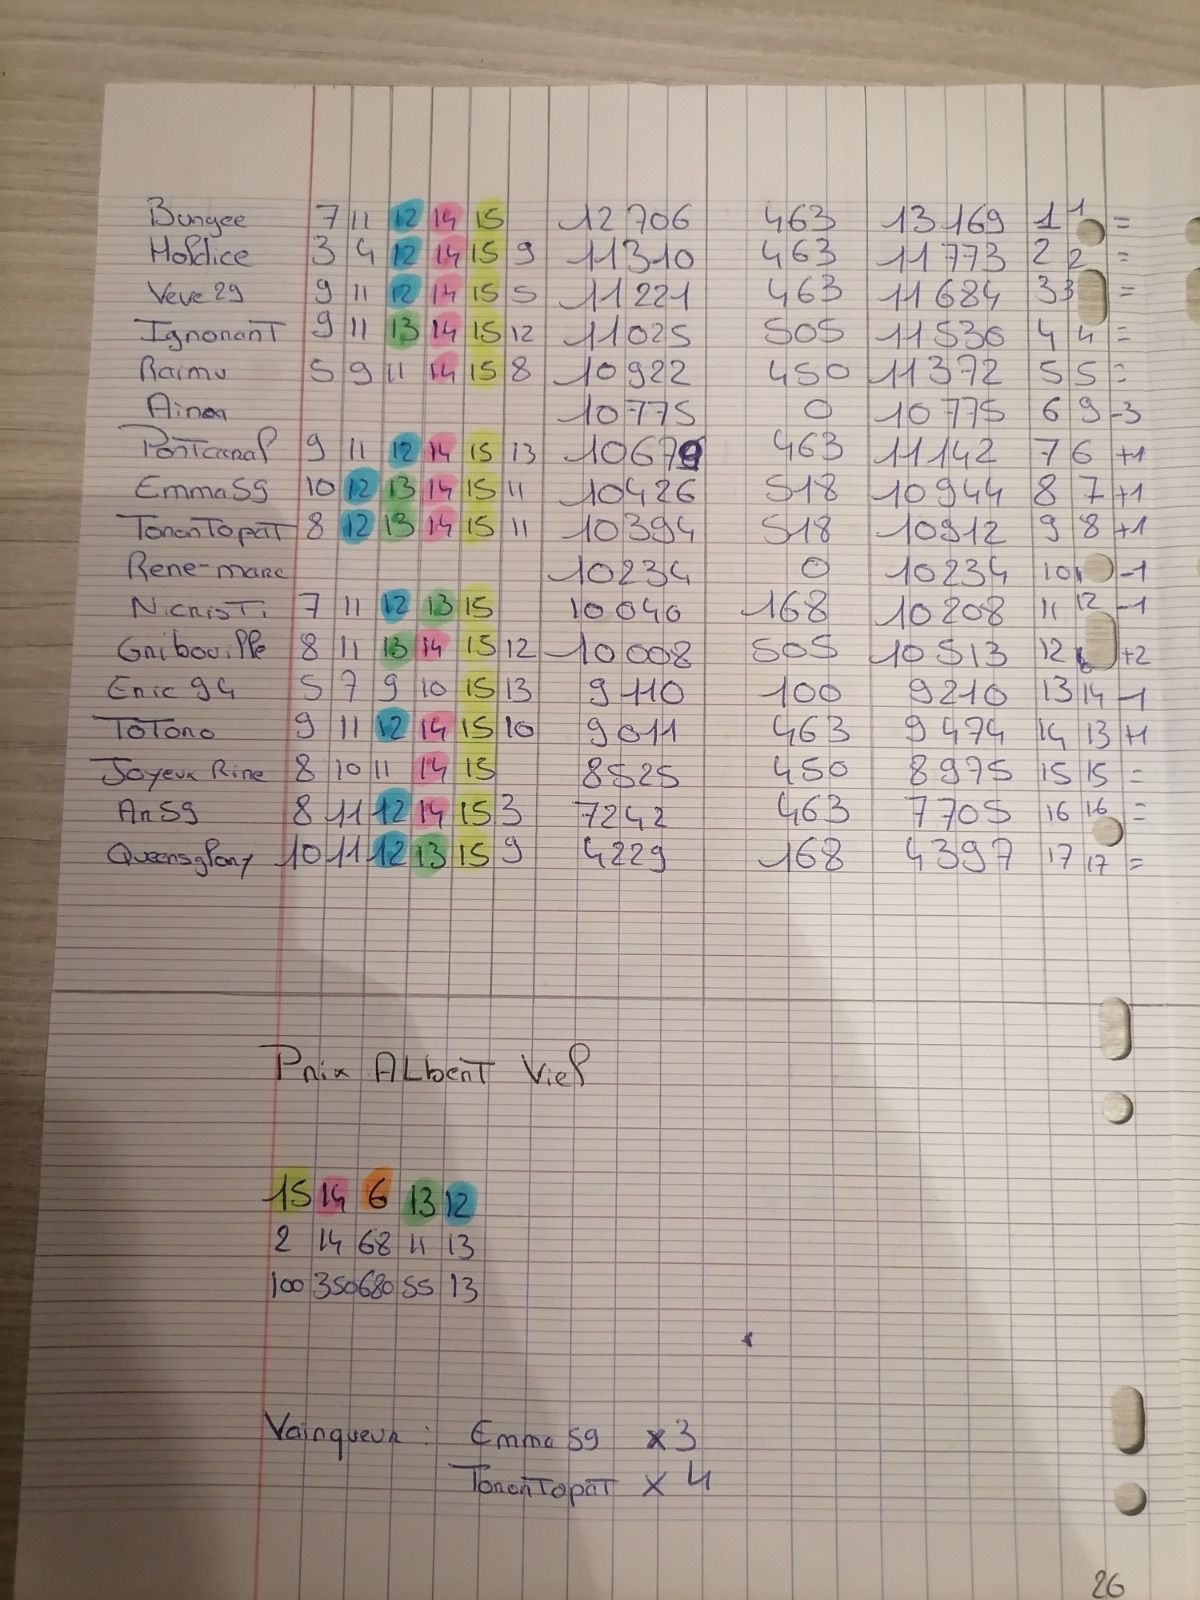 Bungee 7 11 12 14 15 12706 463 13169 1 1 =
Holdice 3 4 12 14 15 9 11310 463 11773 2 2 =
Veve 29 9 11 12 14 15 5 11221 463 11684 3 3 =
IgnoranT 9 11 13 14 15 12 11025 505 11530 4 4 =
Raimu 5 9 11 14 15 8 10922 450 11372 5 5 =
Ainoa 10775 0 10775 6 9 -3
Pontcanal 9 11 12 14 15 13 10679 463 11142 7 6 +1
Emma59 10 12 13 14 15 11 10426 518 10944 8 7 +1
TorenTopaT 8 12 13 14 15 11 10394 518 10912 9 8 +1
Rene-marc 10234 0 10234 10 -1
NicrisTi 7 11 12 13 15 10040 168 10208 11 12 -1
Gribouille 8 11 13 14 15 12 10008 505 10513 12 +2
Eric 94 5 7 9 10 15 13 9110 100 9210 13 14 -1
ToTono 9 11 12 14 15 10 9011 463 9474 14 13 +1
Joyeux Rire 8 10 11 14 15 8525 450 8975 15 15 =
An59 8 11 12 14 15 3 7242 463 7705 16 16 =
QueensgPony 10 11 12 13 15 9 4229 168 4397 17 17 =
Prix ALberT Viel
15 14 6 13 12
2 14 68 11 13
100 350 680 55 13
Vainqueur : Emma 59 x 3
TorenTopaT x 4
26